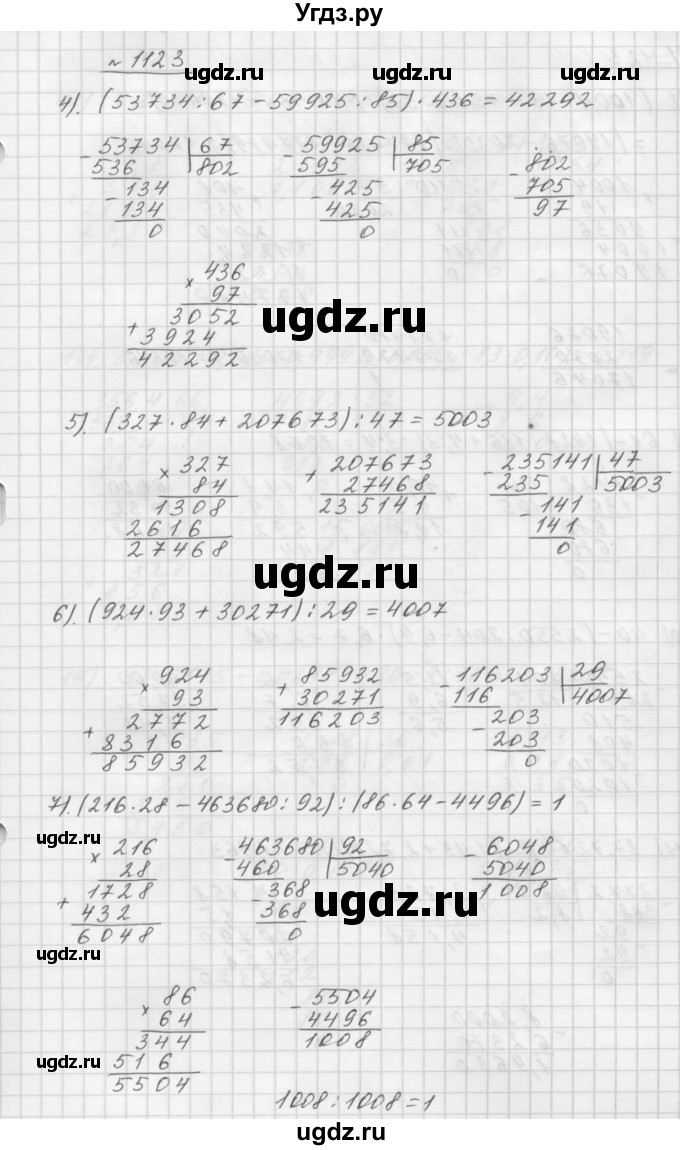 Угдз.ру
№ 1123
ugdz.ru ugdz.ru ugdz.ru
4). (53734:67-59925:85)·436=42292
- 53734 | 67
536 | 802
- 134
134
0
- 59925 | 85
595 | 705
- 425
425
0
- 802
705
97
× 436
97
+ 3052
3924
42292
ugdz.ru
5). (327·84+207673):47=5003
× 327
84
1308
2616
27468
+ 207673
27468
235141
- 235141 | 47
235 | 5003
- 141
141
0
ugdz.ru
6). (924·93+30271):29=4007
× 924
93
+ 2772
8316
85932
+ 85932
30271
116203
- 116203 | 29
116 | 4007
- 203
203
0
7). (216·28-463680:92):(86·64-4496)=1
ugdz.ru ugdz.ru ugdz.ru
× 216
28
+ 1728
432
6048
- 463680 | 92
460 | 5040
- 368
368
0
- 6048
5040
1008
ugdz.ru
ugdz.ru
× 86
64
344
516
5504
- 5504
4496
1008
ugdz.ru ugdz.ru ugdz.ru
1008:1008=1
ugdz.ru